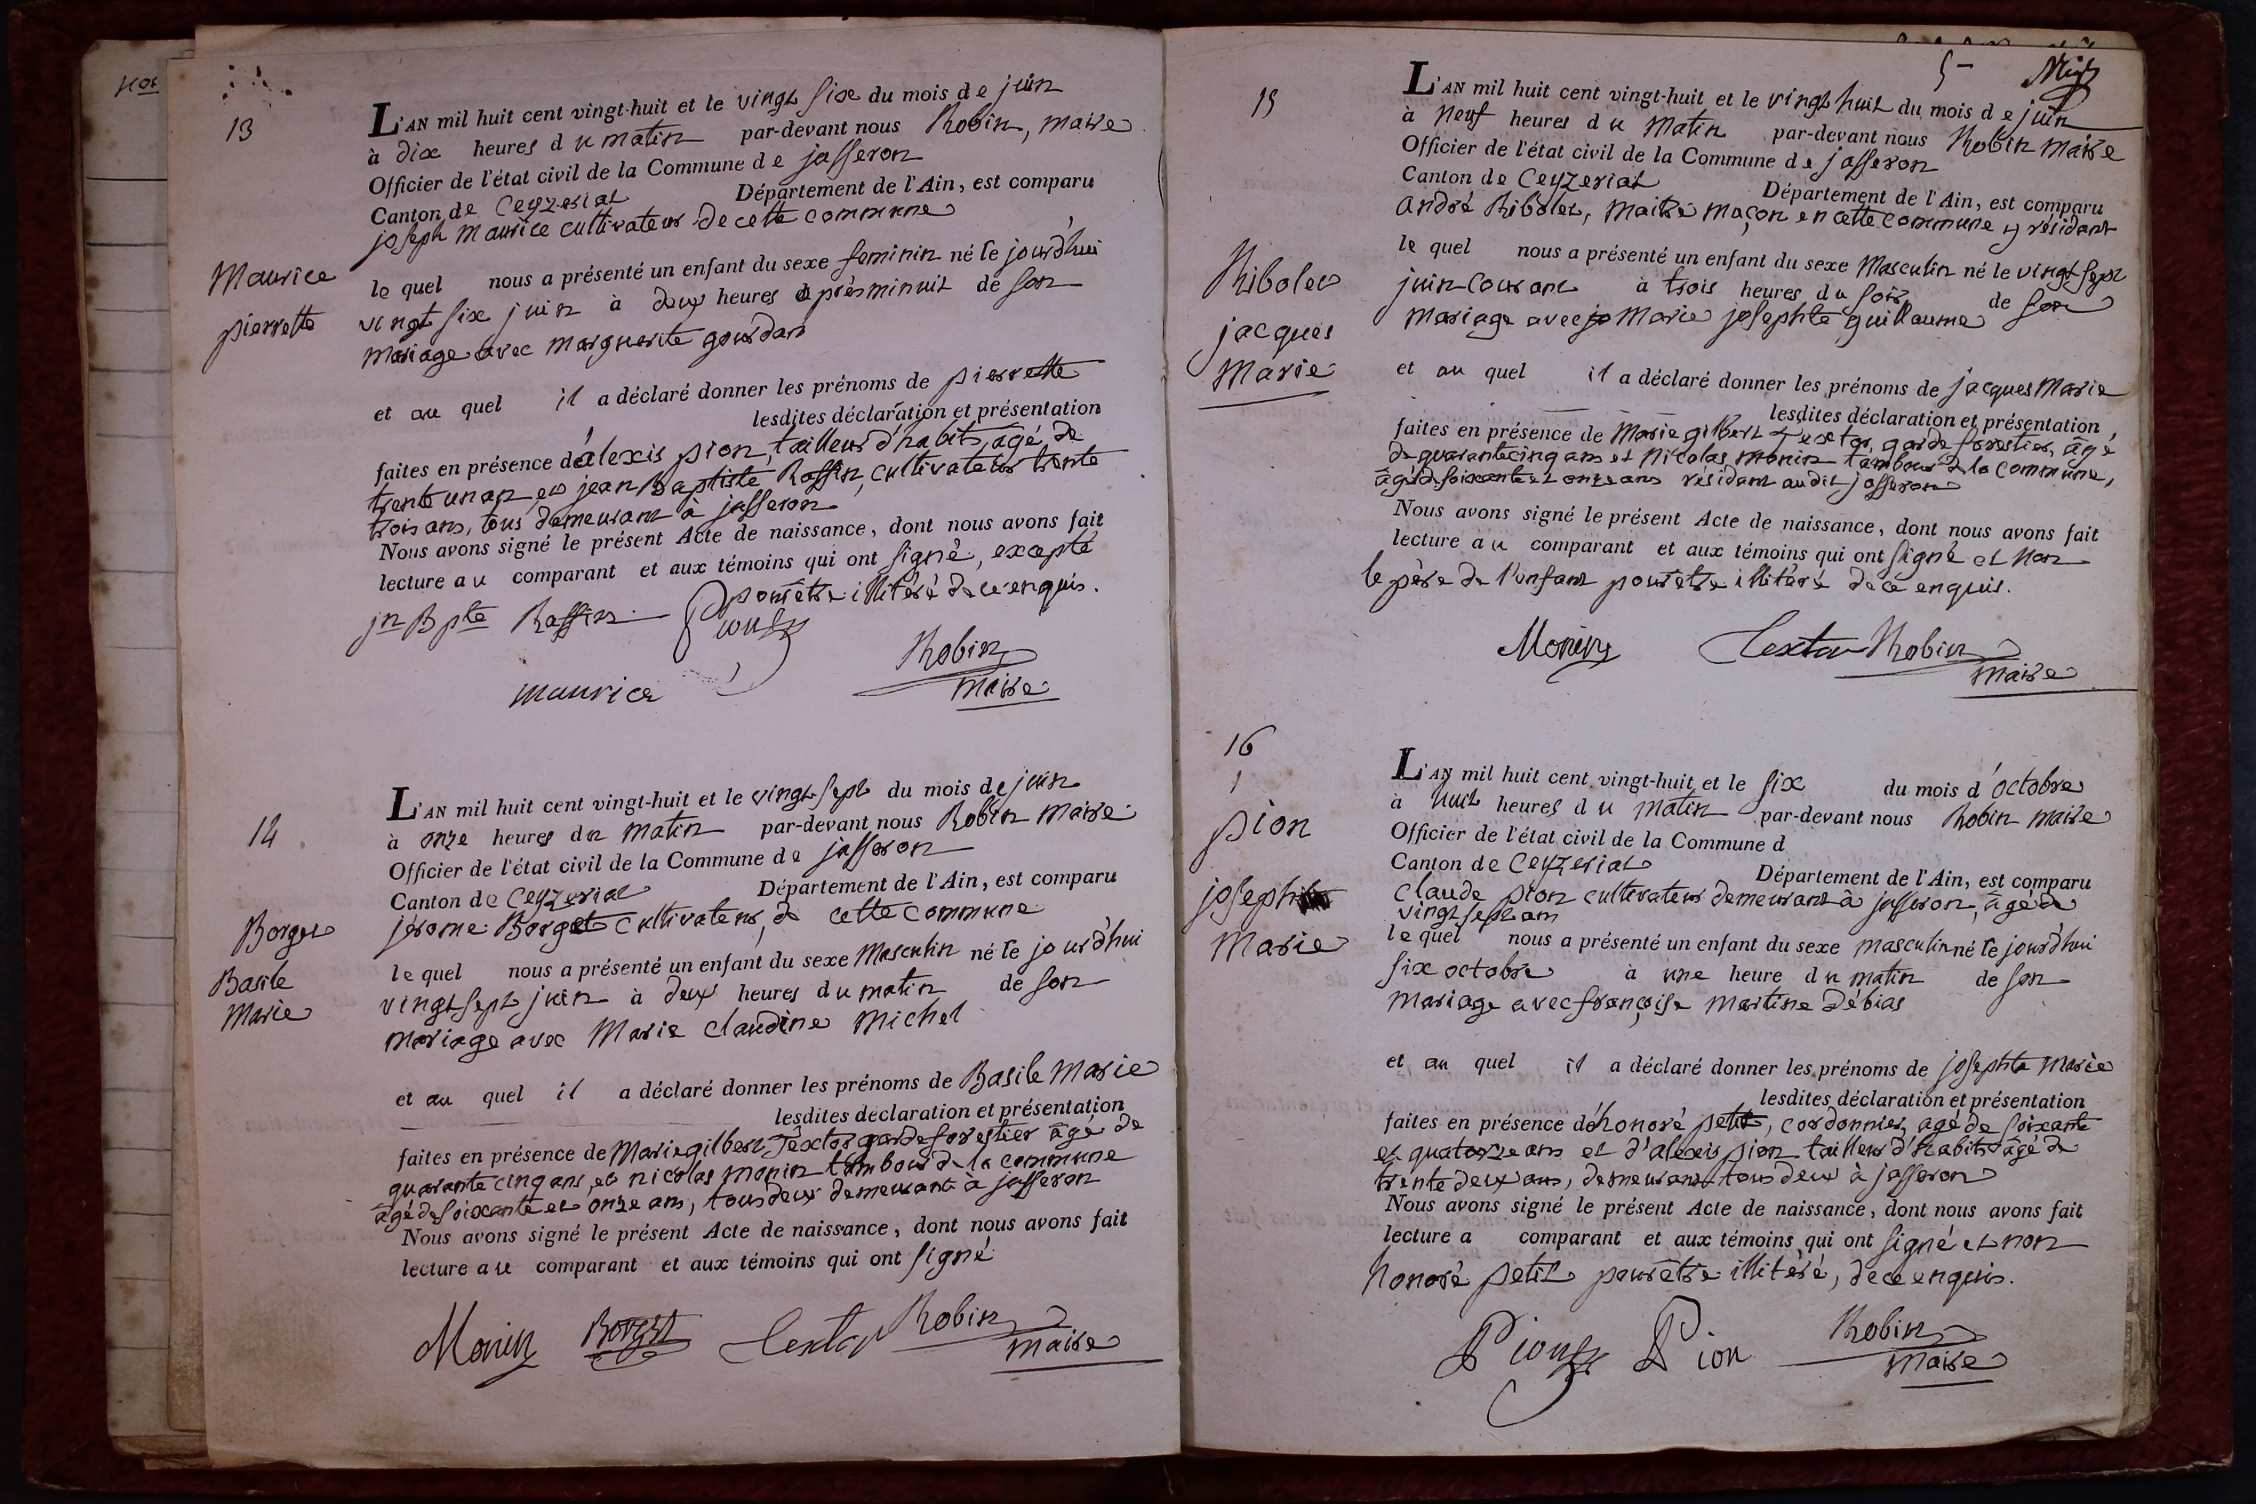 Nos
13
L'AN mil huit cent vingt-huit et le vingt six du mois de juin
à dix heures du matin par-devant nous Robin, maire
Officier de l'état civil de la Commune de jasseron
Canton de Ceyzeriat Département de l'Ain, est comparu
joseph Maurice cultivateur de cette commune
Maurice
pierrette
le quel nous a présenté un enfant du sexe feminin né le jourd'hui
vingt six juin à deux heures après minuit de son
mariage avec marguerite gourdan
et au quel il a déclaré donner les prénoms de pierrette
lesdites déclaration et présentation
faites en présence d'alexis pion, tailleur d'habits, agé de
trente un an, et jean Baptiste Raffin, cultivateur trente
trois ans, tous demeurant à jasseron
Nous avons signé le présent Acte de naissance, dont nous avons fait
lecture au comparant et aux témoins qui ont signé, excepté
pour être illitéré de ce enquis.
jn Bpte Raffin Pion
Robin
maurice maire
14
L'AN mil huit cent vingt-huit et le vingt sept du mois de juin
à onze heures du matin par-devant nous Robin maire
Officier de l'état civil de la Commune de jasseron
Canton de Ceyzeriat Département de l'Ain, est comparu
jérome Borget cultivateur, de cette commune
Borget
Basile
Marie
le quel nous a présenté un enfant du sexe Masculin né le jourd'hui
vingt sept juin à deux heures du matin de son
mariage avec Marie Claudine Michel
et au quel il a déclaré donner les prénoms de Basile Marie
lesdites déclaration et présentation
faites en présence de Marie gilbert Textor garde forestier âgé de
quarante cinq ans, et nicolas monin tambour de la commune
âgé de soixante et onze ans, tous deux demeurant à jasseron
Nous avons signé le présent Acte de naissance, dont nous avons fait
lecture au comparant et aux témoins qui ont signé
Monin Borget Textor Robin
maire
5
15
L'AN mil huit cent vingt-huit et le vingt huit du mois de juin
à neuf heures du Matin par-devant nous Robin maire
Officier de l'état civil de la Commune de jasseron
Canton de Ceyzeriat Département de l'Ain, est comparu
andré Ribolet, maitre maçon en cette commune y résidant
Ribolet
jacques
Marie
le quel nous a présenté un enfant du sexe Masculin né le vingt sept
juin courant à trois heures du soir de son
mariage avec Marie josephte guillaume
et au quel il a déclaré donner les prénoms de jacques Marie
lesdites déclaration et présentation
faites en présence de Marie gilbert Textor, garde forestier, âgé
de quarante cinq ans et Nicolas monin tambour de la commune,
âgé de soixante et onze ans résidant audit jasseron
Nous avons signé le présent Acte de naissance, dont nous avons fait
lecture au comparant et aux témoins qui ont signé et non
le père de l'enfant pour être illitéré de ce enquis.
Monin Textor Robin
maire
16
1
pion
joseph
Marie
L'AN mil huit cent vingt-huit et le six du mois d'octobre
à huit heures du matin par-devant nous Robin maire
Officier de l'état civil de la Commune d
Canton de Ceyzeriat Département de l'Ain, est comparu
claude pion cultivateur demeurant à jasseron, âgé de
vingt sept an
le quel nous a présenté un enfant du sexe masculin né le jourd'hui
six octobre à une heure du matin de son
mariage avec françoise martine Débias
et au quel il a déclaré donner les prénoms de josephte Marie
lesdites déclaration et présentation
faites en présence d'honoré petit, cordonnier, agé de soixante
et quatorze ans et d'alexis pion tailleur d'habits âgé de
trente deux ans, demeurant tous deux à jasseron
Nous avons signé le présent Acte de naissance, dont nous avons fait
lecture a comparant et aux témoins qui ont signé et non
honoré petit pour être illitéré, de ce enquis.
Pion Pion Robin
maire